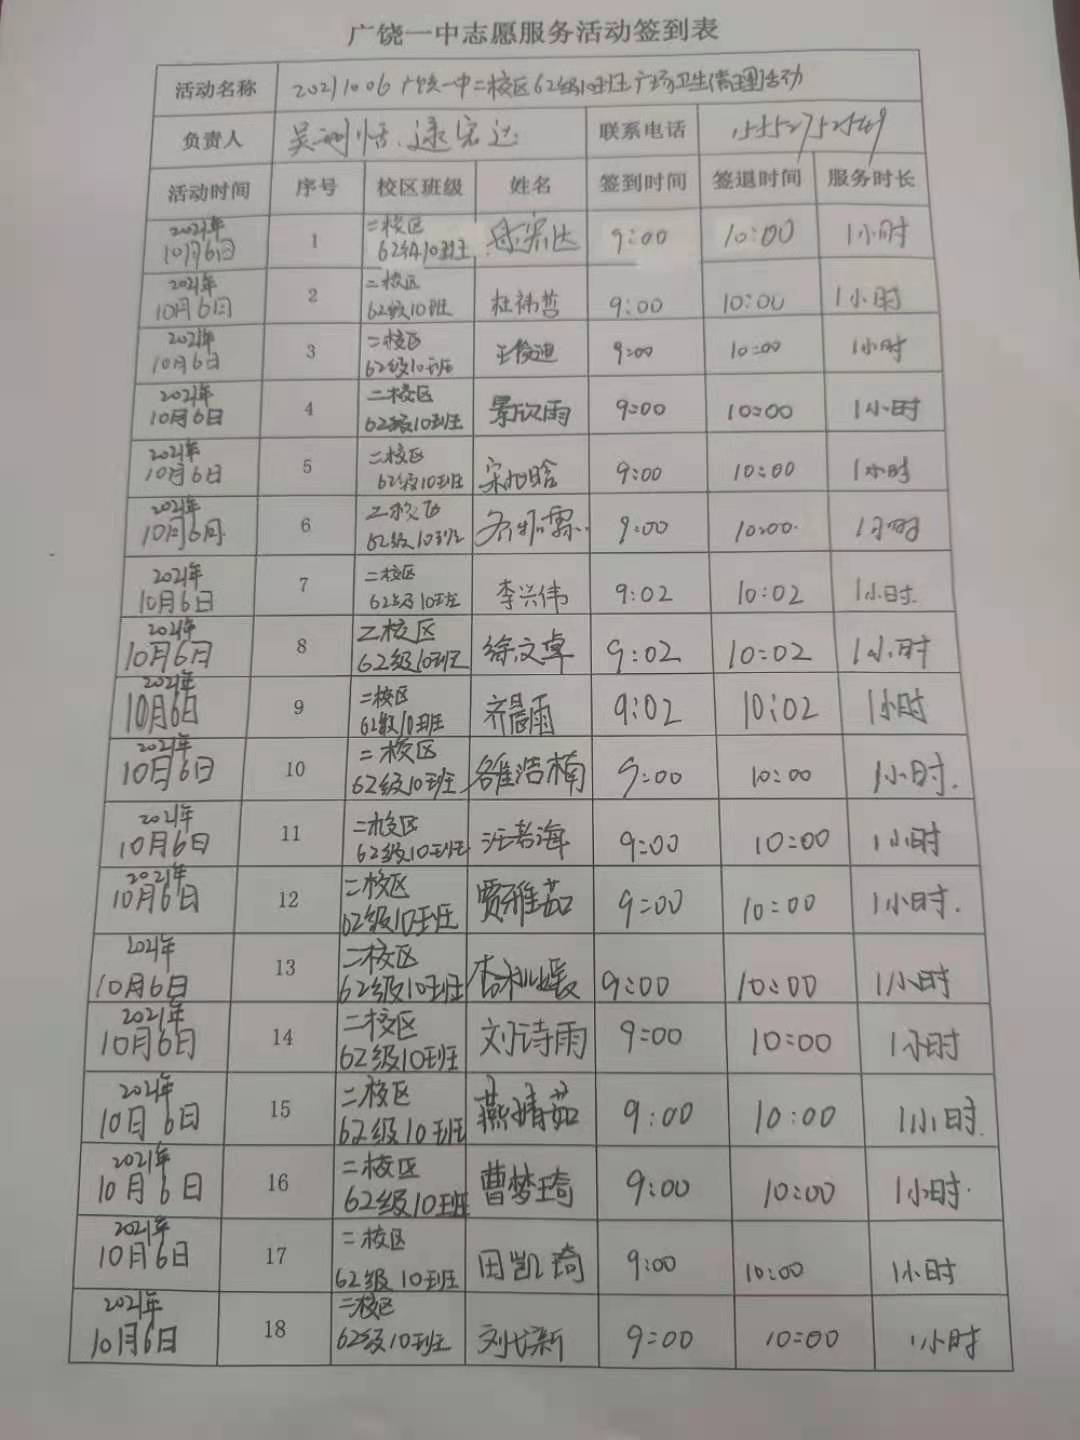 广饶一中志愿服务活动签到表
活动名称 20211006广饶一中二校区62级10班班广场卫生清理活动
负责人 联系电话 15552752569
活动时间 序号 校区班级 姓名 签到时间 签退时间 服务时长
2021年10月6日 1 二校区62级10班 9:00 10:00 1小时
2021年10月6日 2 二校区62级10班 杜祎哲 9:00 10:00 1小时
2021年10月6日 3 二校区62级10班 王俊迪 9:00 10:00 1小时
2021年10月6日 4 二校区62级10班 景欣雨 9:00 10:00 1小时
2021年10月6日 5 二校区62级10班 宋旭晗 9:00 10:00 1小时
2021年10月6日 6 二校区62级10班 9:00 10:00 1小时
2021年10月6日 7 二校区62级10班 李兴伟 9:02 10:02 1小时
2021年10月6日 8 二校区62级10班 徐文卓 9:02 10:02 1小时
2021年10月6日 9 二校区62级10班 齐晨雨 9:02 10:02 1小时
2021年10月6日 10 二校区62级10班 雒浩楠 9:00 10:00 1小时.
2021年10月6日 11 二校区62级10班 9:00 10:00 1小时
2021年10月6日 12 二校区62级10班 贾雅茹 9:00 10:00 1小时.
2021年10月6日 13 二校区62级10班 9:00 10:00 1小时
2021年10月6日 14 二校区62级10班 刘诗雨 9:00 10:00 1小时
2021年10月6日 15 二校区62级10班 燕婧茹 9:00 10:00 1小时.
2021年10月6日 16 二校区62级10班 曹梦琦 9:00 10:00 1小时.
2021年10月6日 17 二校区62级10班 田凯琦 9:00 10:00 1小时
2021年10月6日 18 二校区62级10班 9:00 10:00 1小时